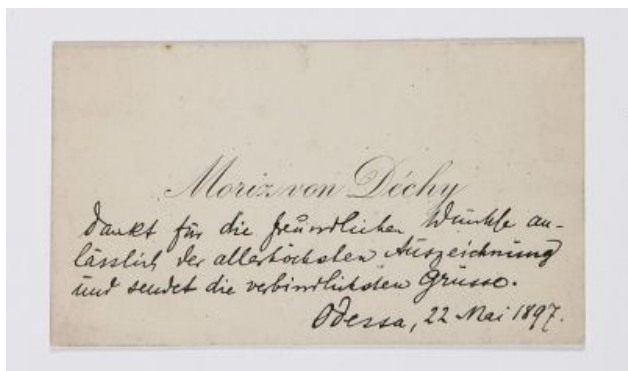 Moriz von Déchy
dankt für die freundlichen Wünsche an-
lässlich der allerhöchsten Auszeichnung
und sendet die verbindlichsten Grüsse.
Odessa, 22 Mai 1897.